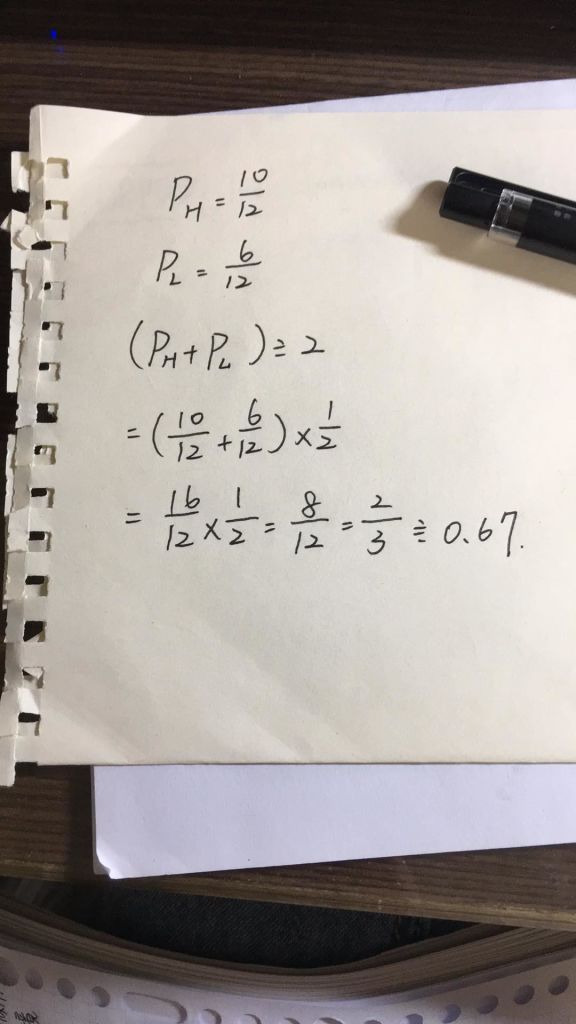 P_H = 10/12
P_L = 6/12
(P_H + P_L) ÷ 2
= (10/12 + 6/12) × 1/2
= 16/12 × 1/2 = 8/12 = 2/3 ≒ 0.67.